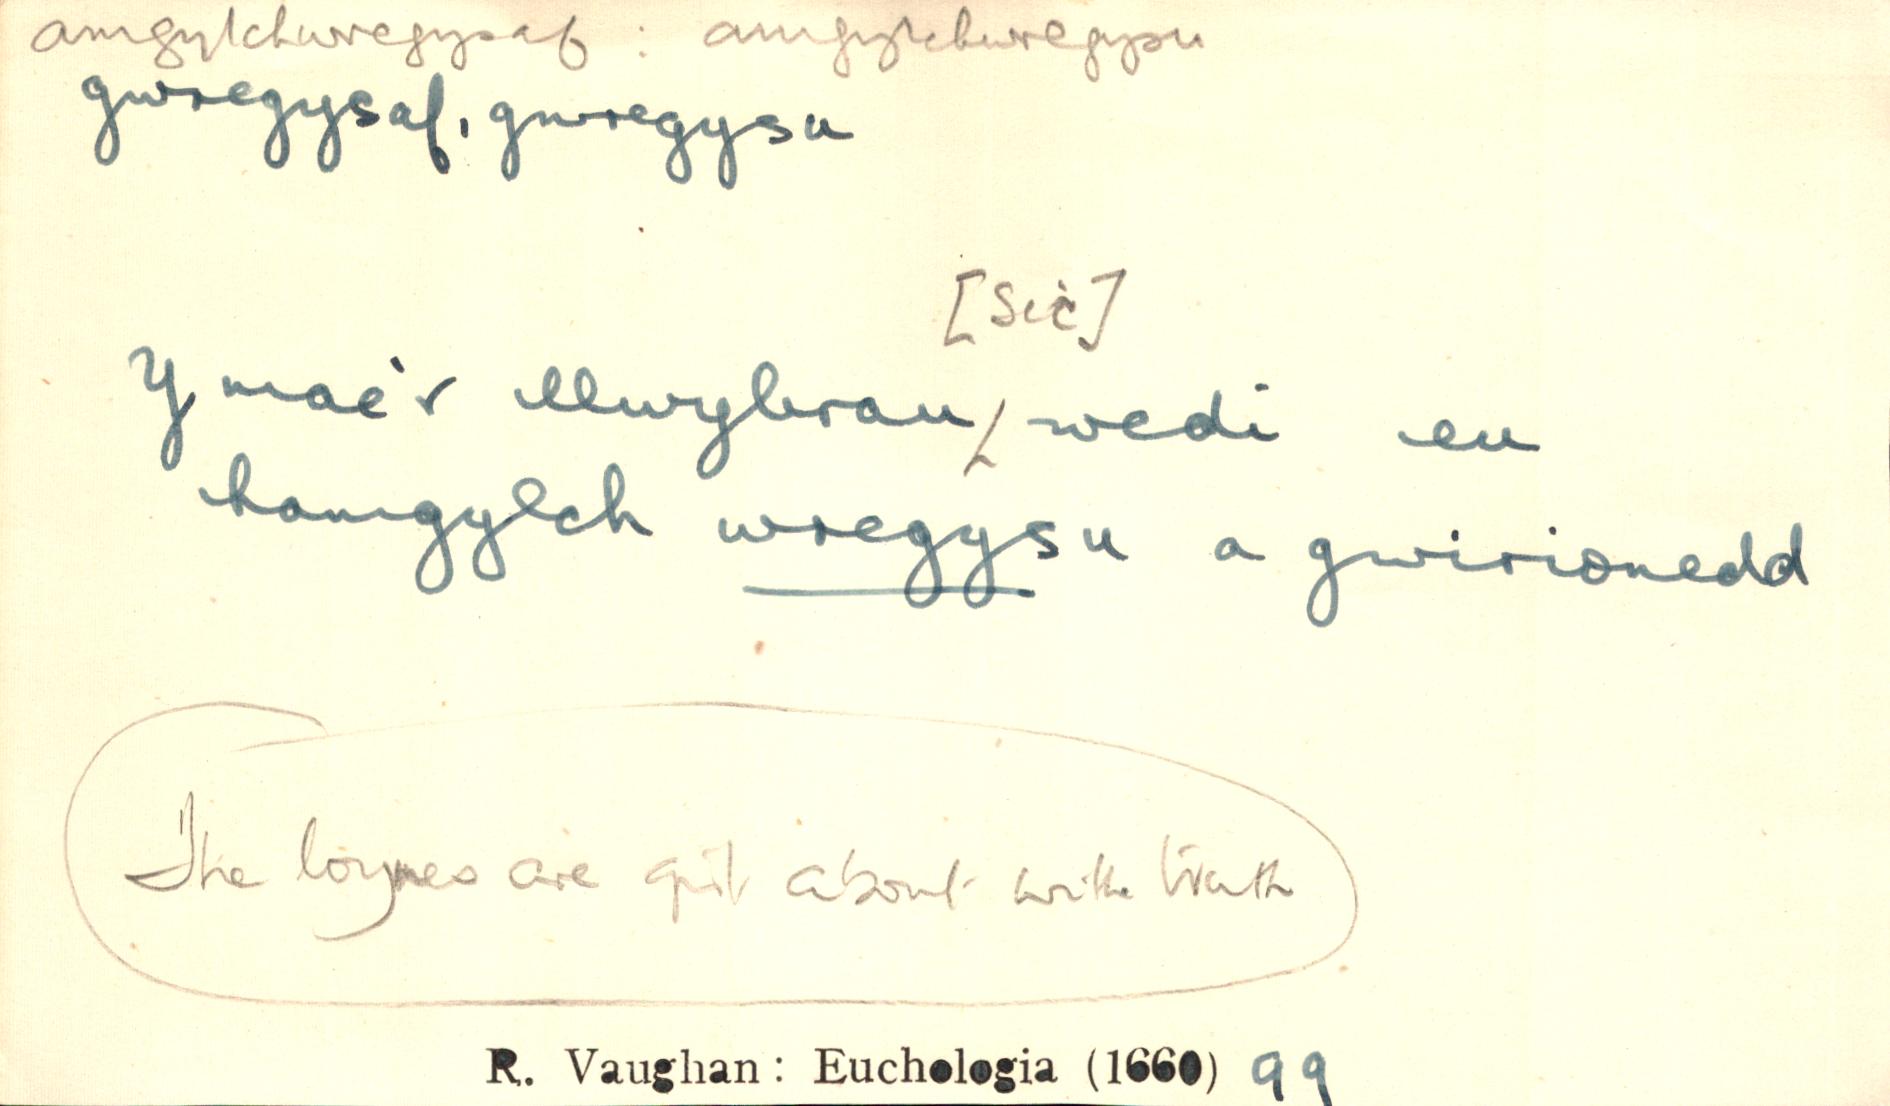 amgylchwregysaf : amgylchwregysu
gwregysaf, gwregysu
[Sic]
Y mae'r llwybrau/wedi eu
hamgylch wregysu a gwirionedd
The loynes are girt about with truth
R. Vaughan: Euchologia (1660) 99